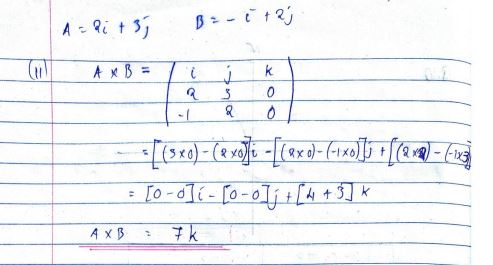 A = 2i + 3j   B = - i + 2j
(11) A × B = | i j k |
| 2 3 0 |
| -1 2 0 |
= [(3×0) - (2×0)]i - [(2×0) - (-1×0)]j + [(2×2) - (-1×3)]
= [0-0]i - [0-0]j + [4+3] k
A × B = 7k